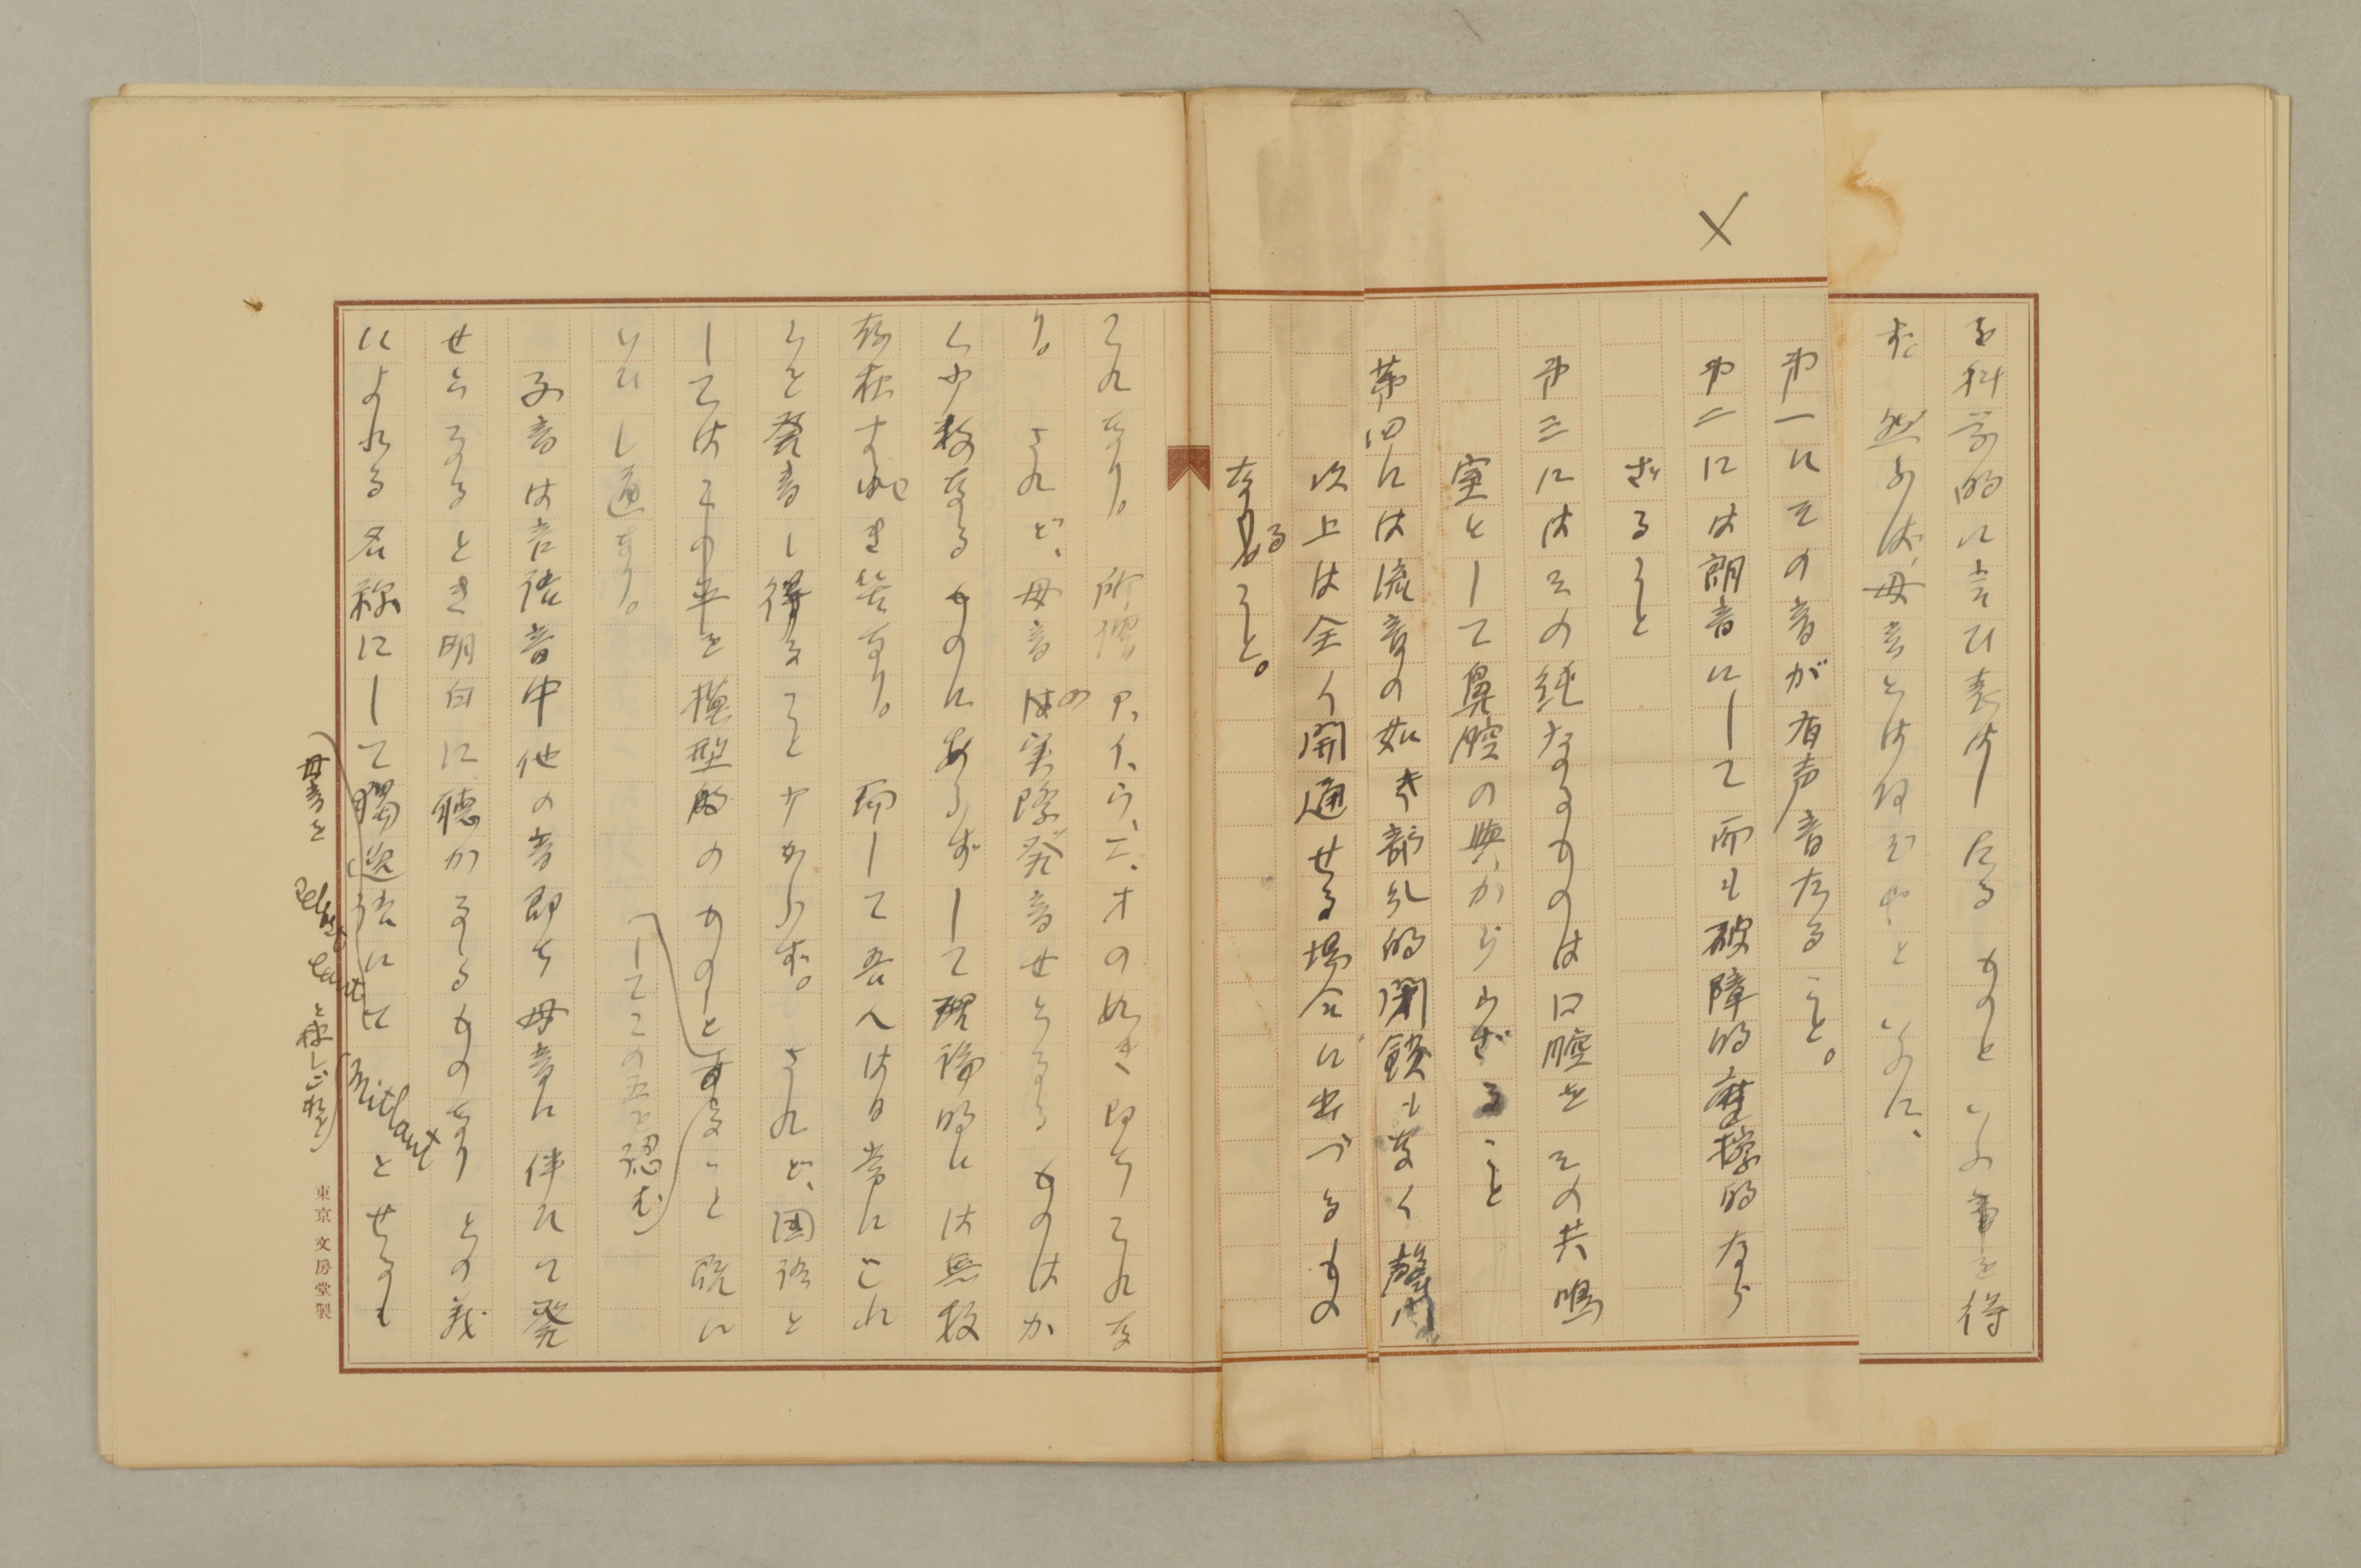 を科学的に言ひ表はしたるものといふ事を得
ず。然らば、母音とは何ぞやといふに、
第一にその音が有声音たること。
第二には朗音にして而も破障的摩擦的なら
ざること
第三にはその純なるものは口腔をその共鳴
室として鼻腔の与からざること
第四には流音の如き部分的閉鎖もなく声門
以上は全く開通せる場合に出づるもの
なること。
これなり。所謂ア、イ、ウ、エ、オの如き即ちこれな
り。されど、母音の実際発音せらるるものはか
く少数なるものにあらずして理論的には無数
存在すべき筈なり。而して吾人は日常にこれ
らを発音し得ること少からず。されど、国語と
してはその五を模型的のものとすること既に
いひし通なり。
してこの五を認む
子音は言語音中他の音即ち母音に伴れて発
せらるるとき明白に聴かるるものなりとの義
によれる名称にして独逸語にて Mitlaut とせるも
(母音を Selbstlaut と称し之を)
東京文房堂製